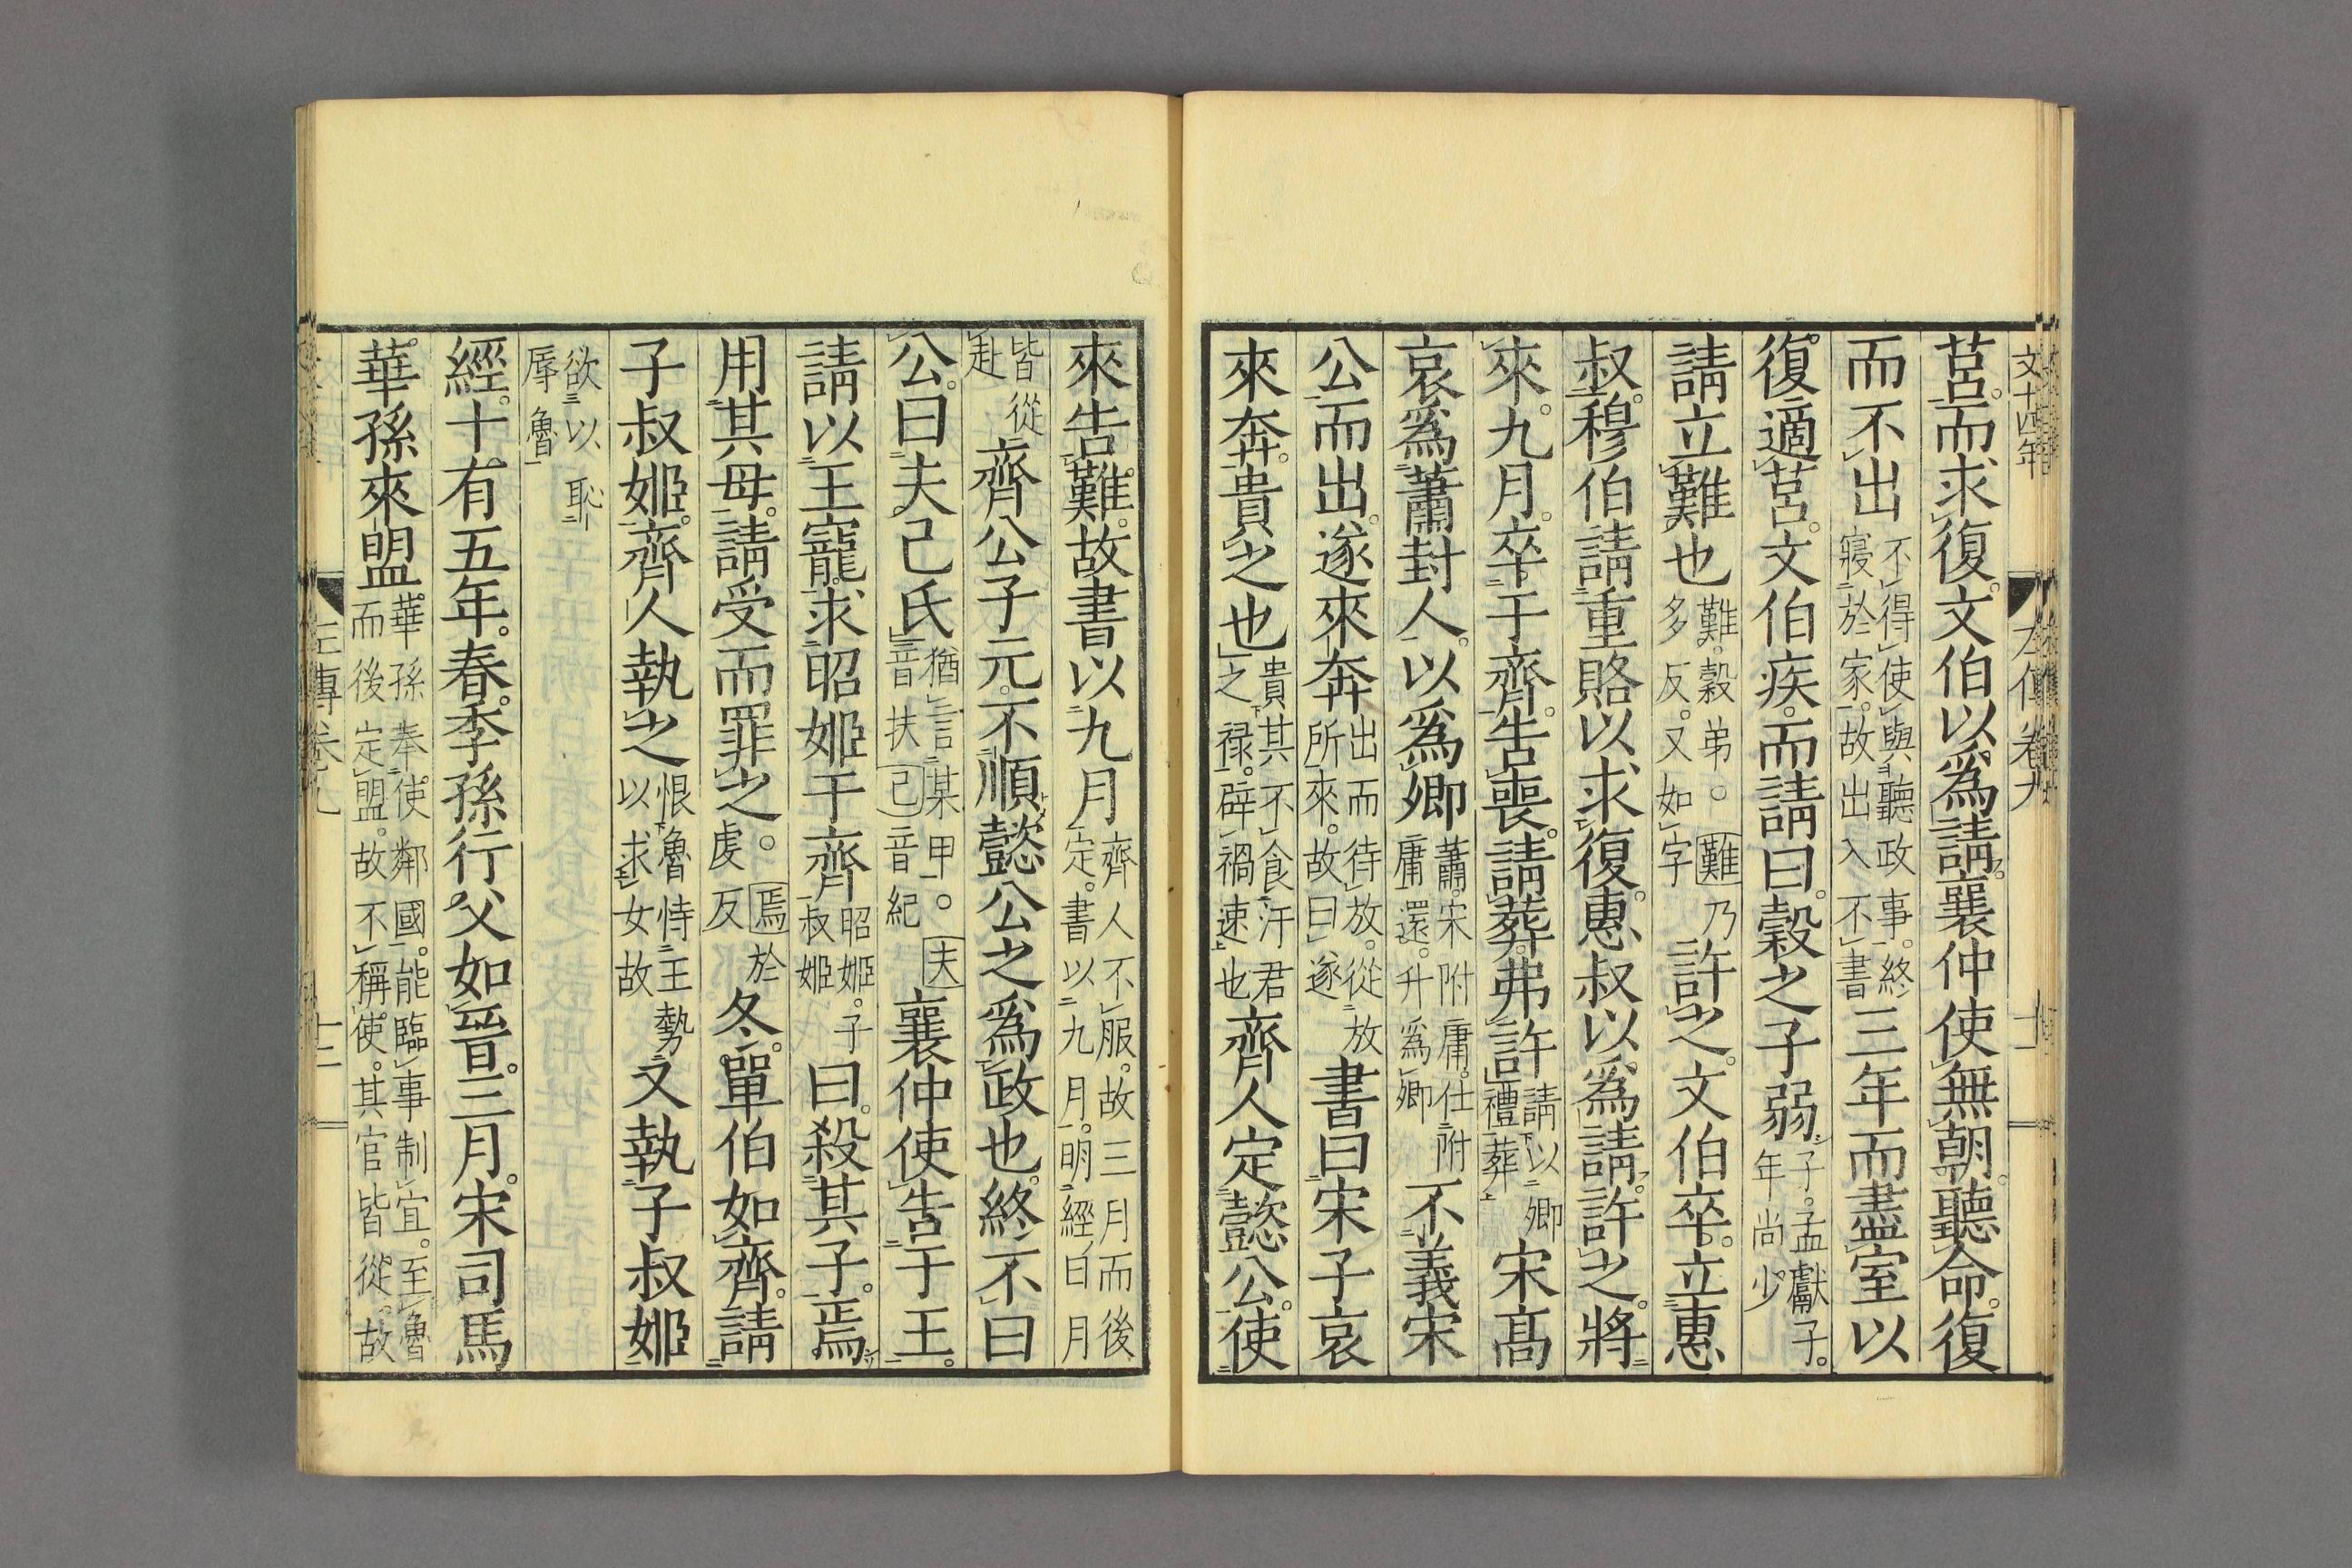 文十四年
左傳卷九
十一
莒。而求復。文伯以爲請。襄仲使無朝。聽命。復
而不出不得使與聽政事。終寢於家。故出入不書三年而盡室以
復適莒。文伯疾。而請曰。穀之子弱。子。孟獻子。年尚少
請立難也難。穀弟。○難乃多反。又如字許之。文伯卒。立惠
叔。穆伯請重賂以求復。惠叔以爲請。許之。將
來。九月。卒于齊。告喪。請葬。弗許請以卿禮葬宋髙
哀爲蕭封人。以爲卿蕭。宋附庸。仕附庸還。升爲卿不義宋
公而出。遂來奔出而待放。從放所來。故曰遂書曰宋子哀
來奔。貴之也貴其不食汙君之禄。辟禍速也齊人定懿公。使
來告難。故書以九月齊人不服。故三月而後定。書以九月。明經日月
皆從赴齊公子元。不順懿公之爲政也。終不曰
公。曰夫己氏猶言某甲。○夫音扶己音紀襄仲使告于王。
請以王寵。求昭姬于齊昭姬。子叔姬曰。殺其子。焉
用其母。請受而罪之。○焉於虔反冬。單伯如齊。請
子叔姬。齊人執之恨魯恃王勢以求女故又執子叔姬
欲以恥辱魯
經。十有五年。春。季孫行父如晉。三月。宋司馬
華孫來盟。華孫奉使鄰國。能臨事制宜。至魯而後定盟。故不稱使。其官皆從。故
左傳卷九
十二